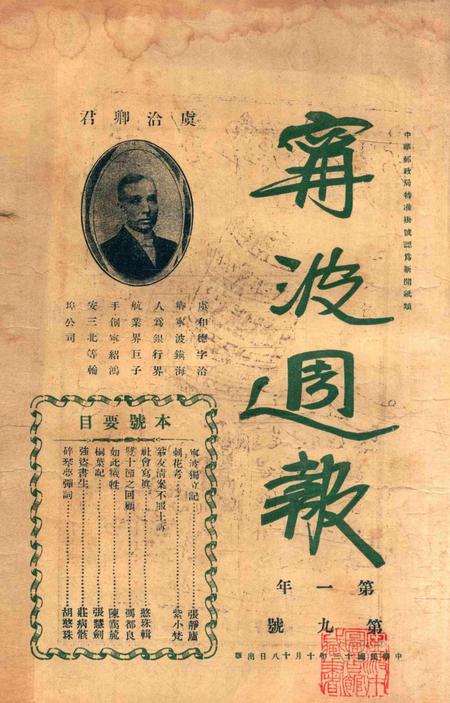 中華郵政局特准掛號認爲新聞紙類
甯波週報
第一年
第九號
中華民國十三年十月十八日出版
虞洽卿君
虞和德字洽
卿寧波鎮海
人爲銀行界
航業界巨子
手創寧紹鴻
安三北等輪
埠公司
本號要目
寧波獨立記⋯⋯張靜廬
刺花考⋯⋯紫小梵
翁友清案不服上訴
社會寫眞⋯⋯憨珠輯
雙十節之回顧⋯⋯馮都良
如此犧牲⋯⋯陳寯菰
桐葉記⋯⋯張慧劍
強盜書生⋯⋯莊病骸
碎琴夢彈詞⋯⋯胡憨珠